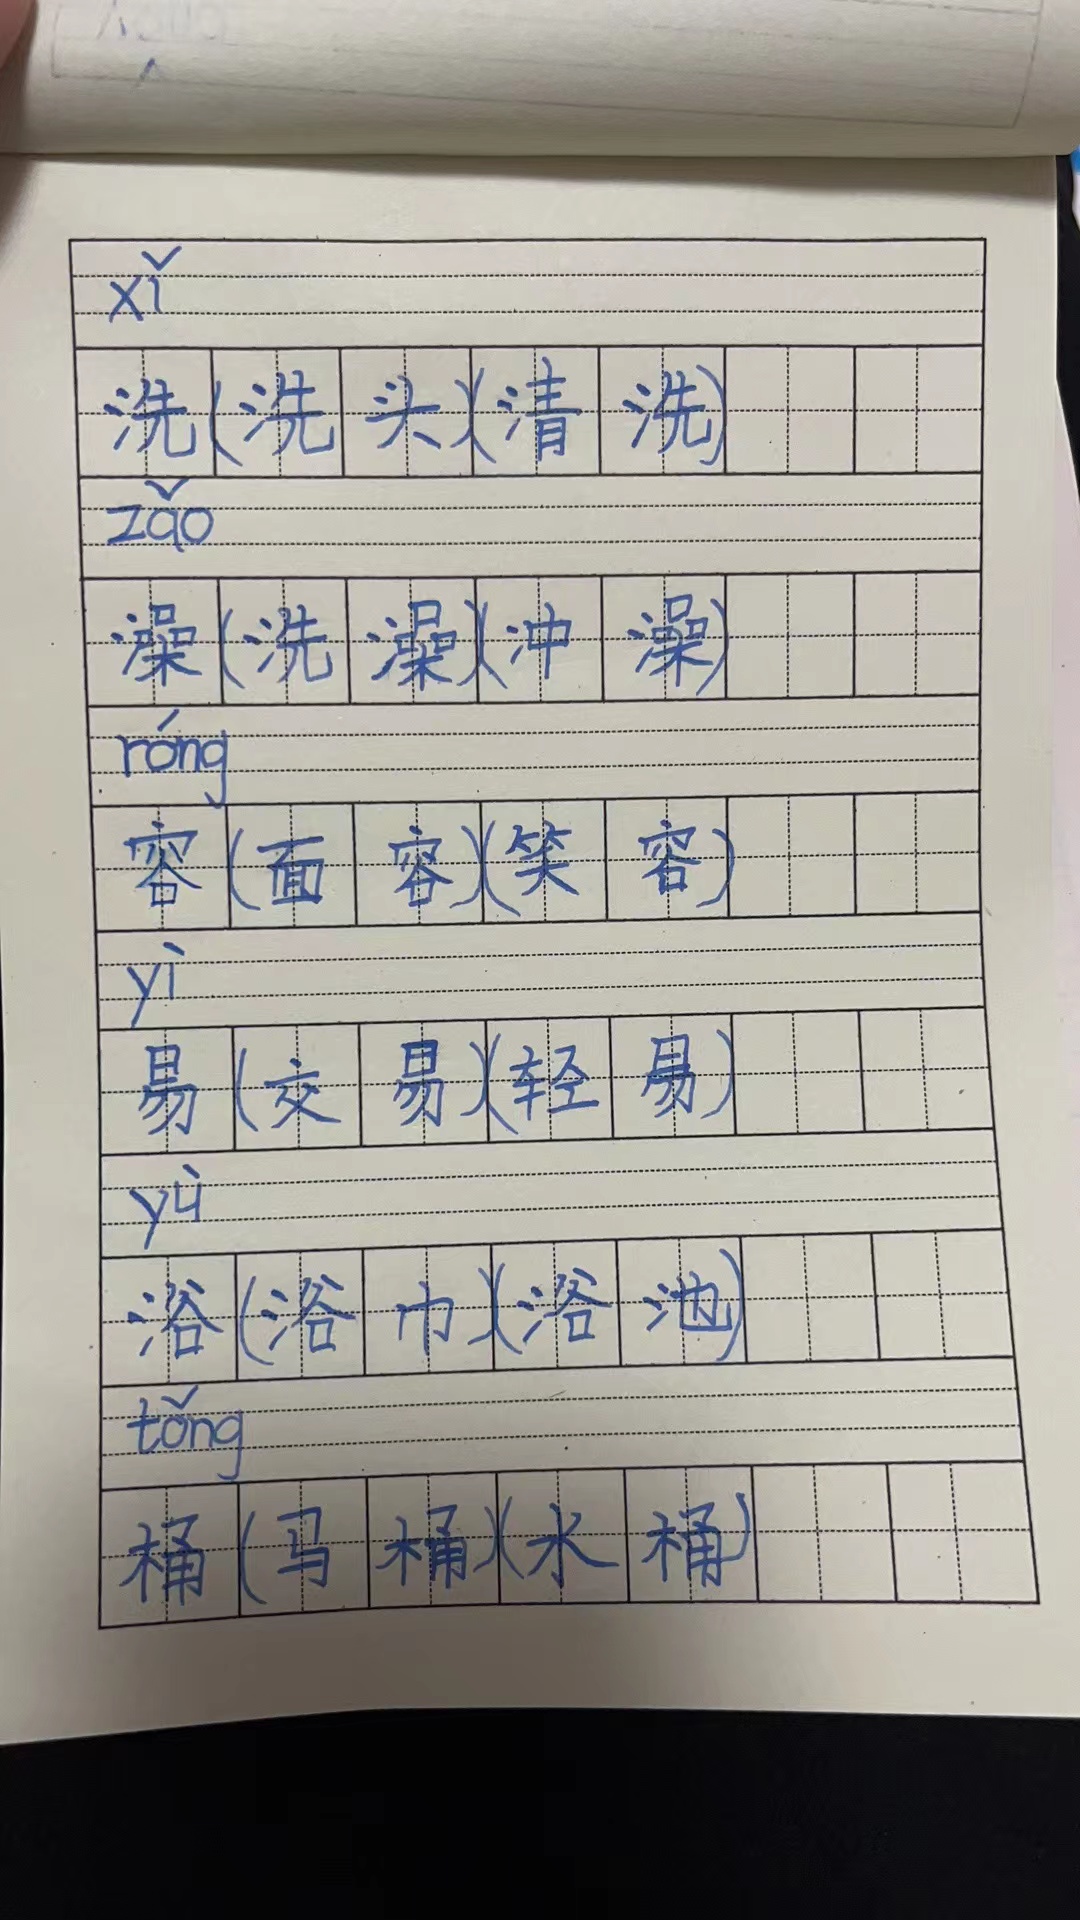 xǐ
洗(洗头)(清洗)
zǎo
澡(洗澡)(冲澡)
róng
容(面容)(笑容)
yì
易(交易)(轻易)
yù
浴(浴巾)(浴池)
tǒng
桶(马桶)(水桶)